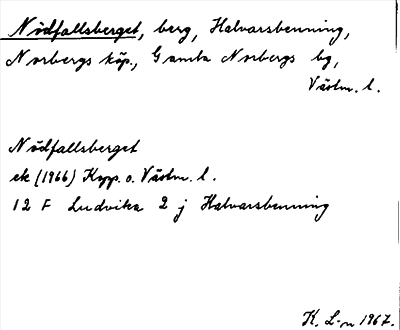 Nödfallsberget, berg, Halvarsbenning,
Norbergs köp., Gamla Norbergs bg,
Västm. l.
Nödfallsberget
ek (1966) Kopp. o. Västm. l.
12 F Ludvika 2 j Halvarsbenning
K. L-n 1967.